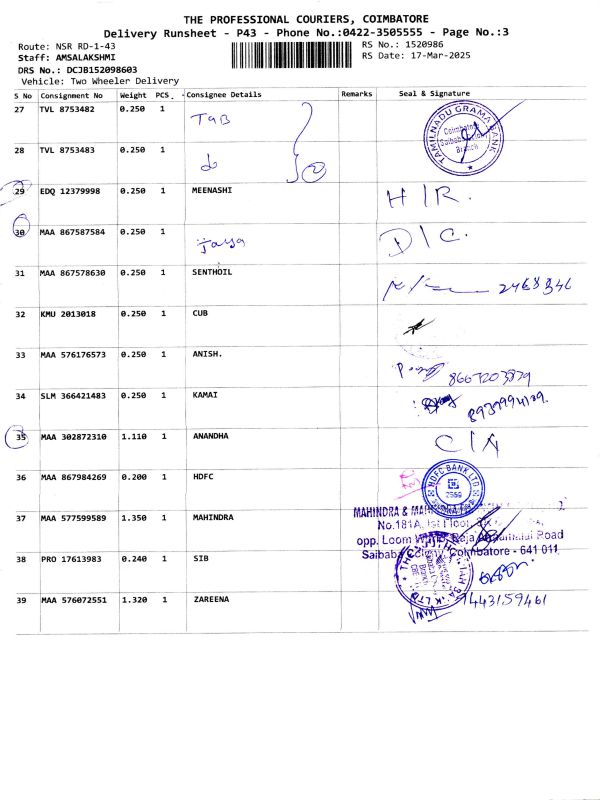 THE PROFESSIONAL COURIERS, COIMBATORE
Delivery Runsheet - P43 - Phone No.:0422-3505555 - Page No.:3
Route: NSR RD-1-43 RS No.: 1520986
Staff: AMSALAKSHMI RS Date: 17-Mar-2025
DRS No.: DCJB152098603
Vehicle: Two Wheeler Delivery
S No Consignment No Weight PCS. Consignee Details Remarks Seal & Signature
27 TVL 8753482 0.250 1 TGB TAMILNADU GRAMA BANK Coimbatore Saibaba Branch
28 TVL 8753483 0.250 1 do 2
29 EDQ 12379998 0.250 1 MEENASHI H/R.
30 MAA 867587584 0.250 1 Jaya D/C.
31 MAA 867578630 0.250 1 SENTHOIL
32 KMU 2013018 0.250 1 CUB
33 MAA 576176573 0.250 1 ANISH.
34 SLM 366421483 0.250 1 KAMAI
35 MAA 302872310 1.110 1 ANANDHA C/A
36 MAA 867984269 0.200 1 HDFC HDFC BANK LTD
37 MAA 577599589 1.350 1 MAHINDRA MAHINDRA &
No.181A, Ist Floor,
opp. Loom Road
Saibaba Colony, Coimbatore - 641 011.
38 PRO 17613983 0.240 1 SIB
39 MAA 576072551 1.320 1 ZAREENA 7443159461